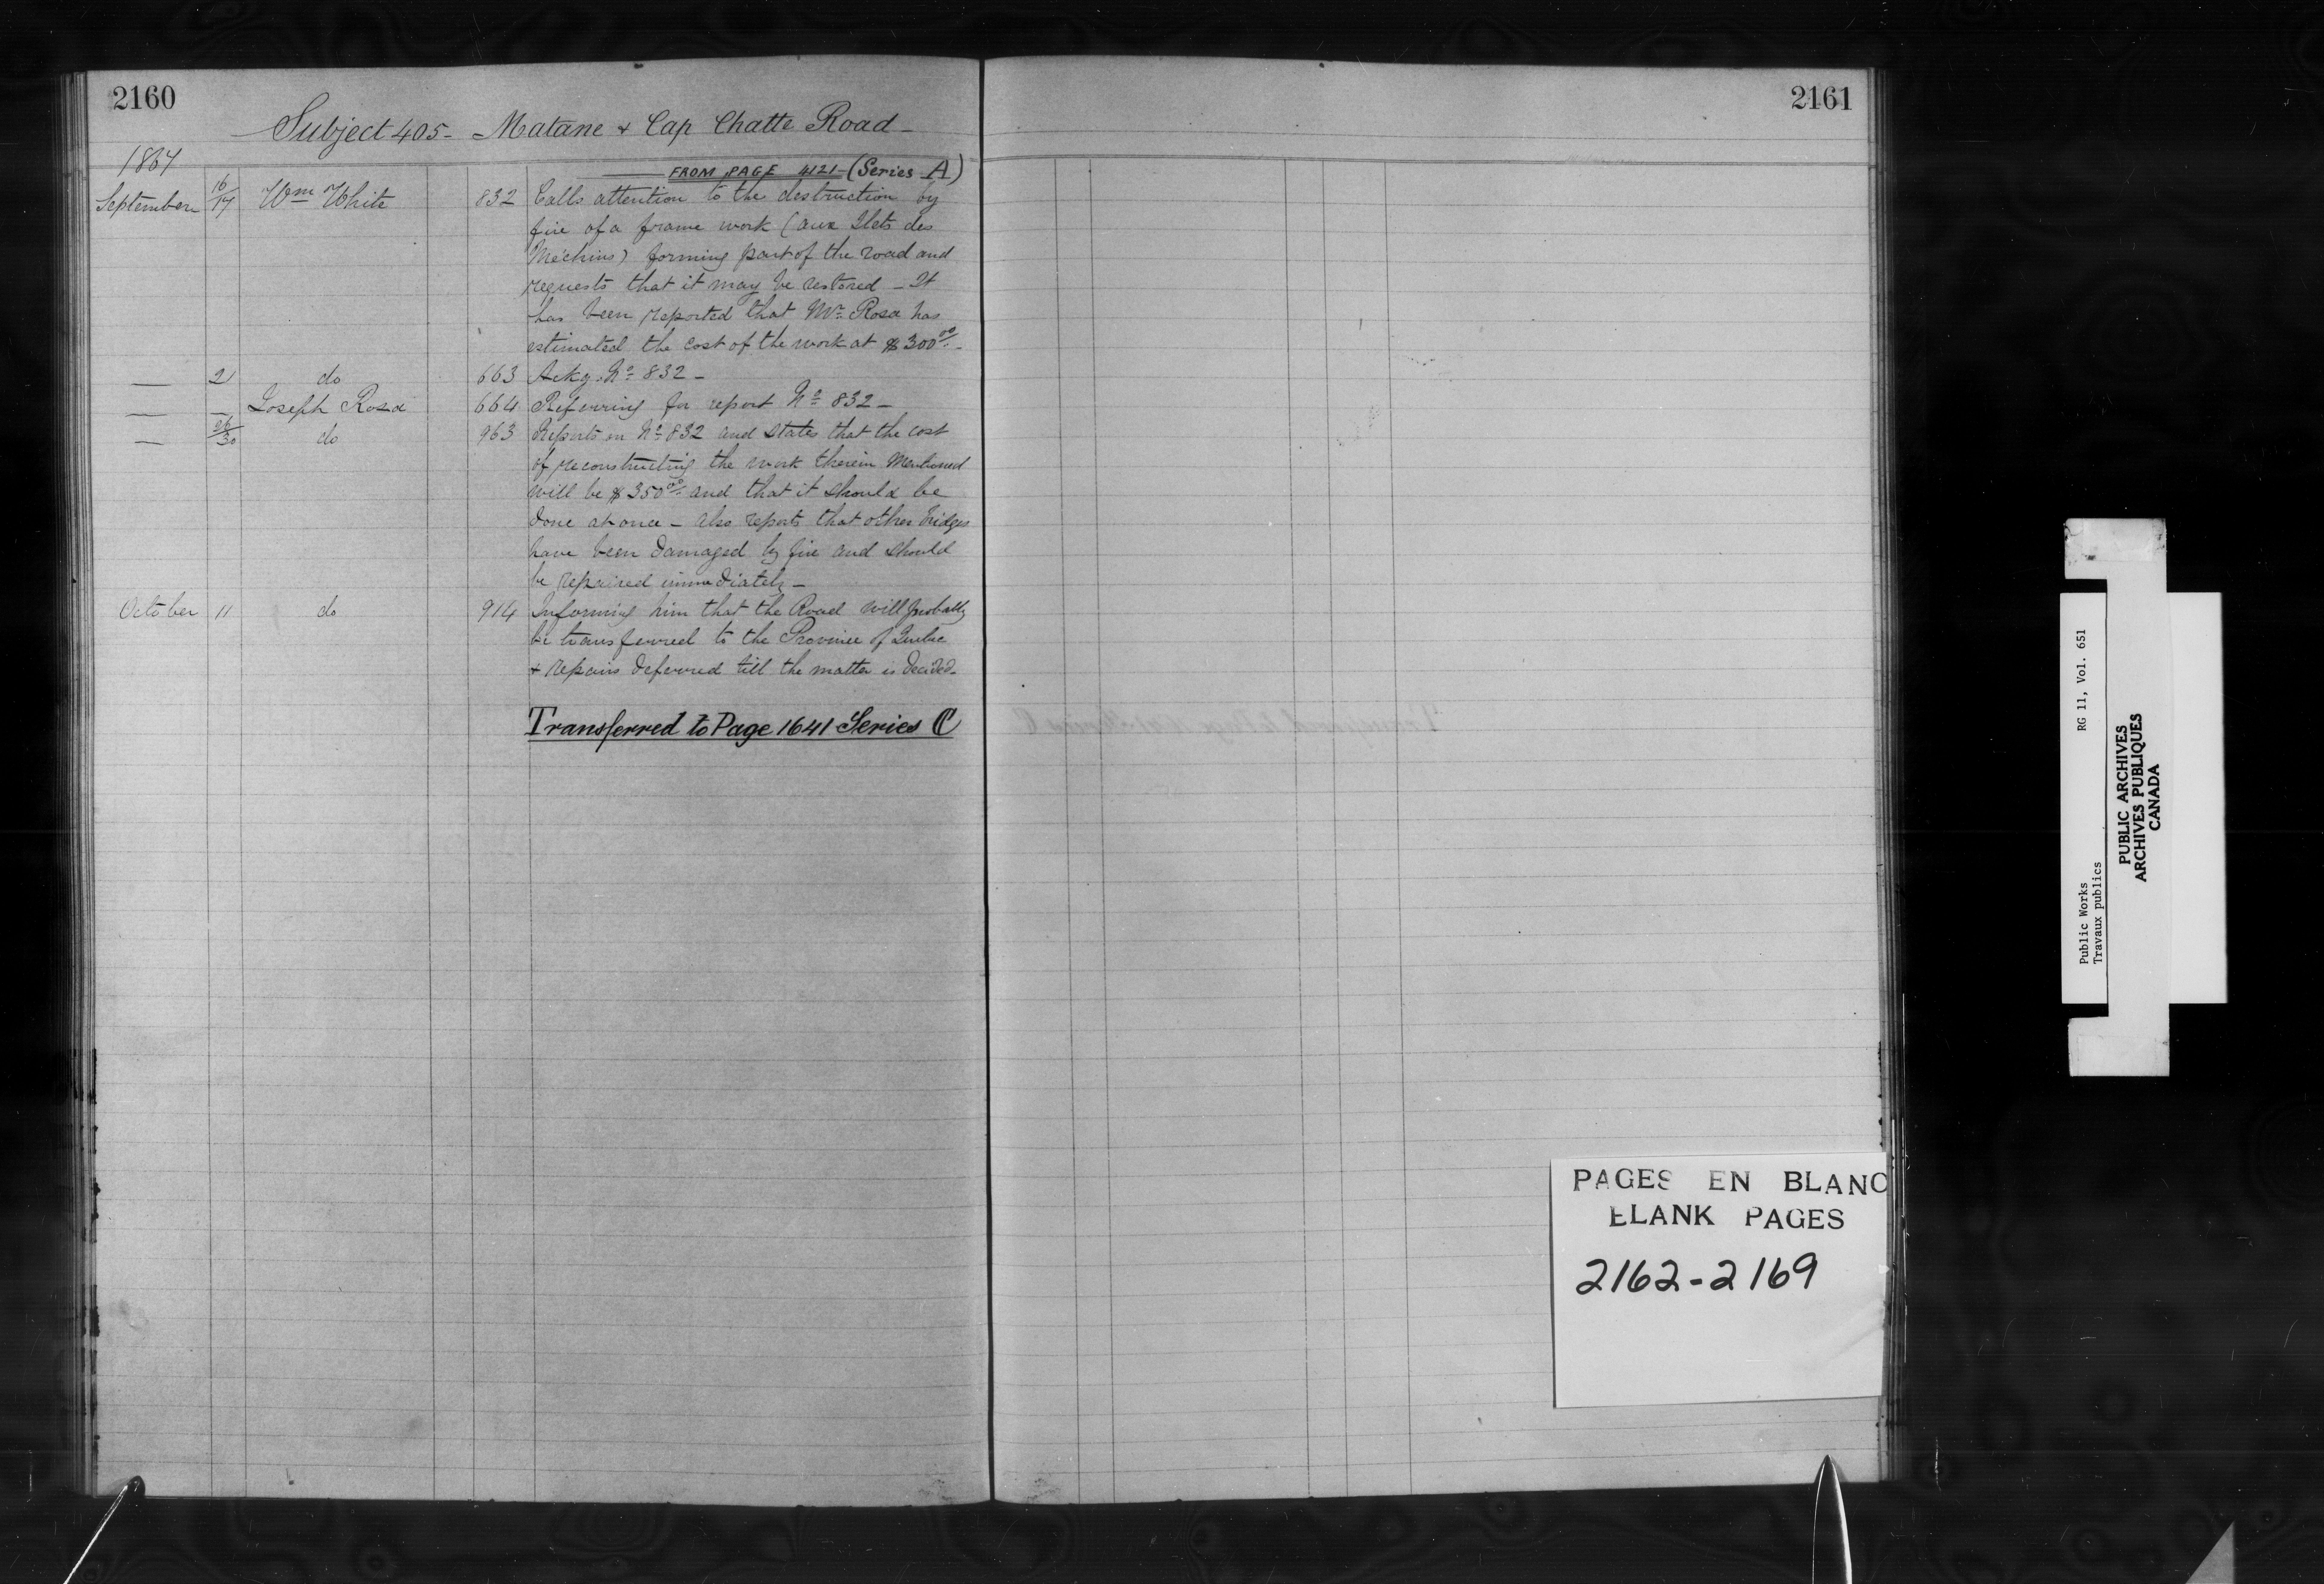 2160
Subject 405 - Matane & Cap Chatte Road -
1867
FROM PAGE 4121 - (Series A)
September 16/17 Wm White 832 Calls attention to the destruction by
fire of a frame work (aux Ilets des
Méchins) forming part of the road and
requests that it may be restored - It
has been reported that Mr Rosa has
estimated the cost of the work at $300 00/.. -
— 21 do 663 Ackg. No 832 -
— — Joseph Rosa 664 Referring for report No 832 -
— 26/30 do 963 Reports on No 832 and states that the cost
of reconstructing the work therein mentioned
will be $350 00/.. and that it should be
done at once - also reports that other bridges
have been damaged by fire and should
be repaired immediately -
October 11 do 914 Informing him that the Road will probably
be transferred to the Province of Quebec
& repairs deferred till the matter is decided -
Transferred to Page 1641 Series C
2161
PAGES EN BLANC
BLANK PAGES
2162-2169
Public Works RG 11, Vol. 651
Travaux publics
PUBLIC ARCHIVES
ARCHIVES PUBLIQUES
CANADA